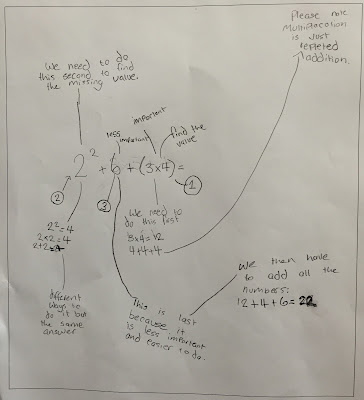 Please note
Multiplacation
is Just
repleted
addition.
We need to do
this second to find
the missing value.
important
less
important
find the
value
2² + 6 + (3×4) =
2
3
1
2²=4
2×2=4
2+2=4
We need to
do this first
3×4=12
4+4+4
We then have
to add all the
numbers:
12+4+6=22
different
ways to
do it but
the same
answer
This is last
because it
is less important
and easier to do.